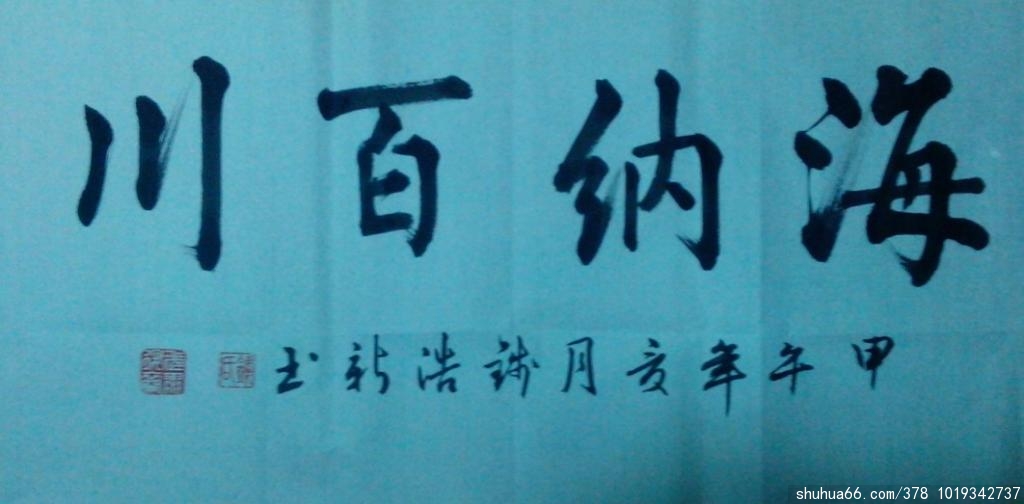 海纳百川
甲午年亥月钱浩新书
shuhua66.com/378 1019342737